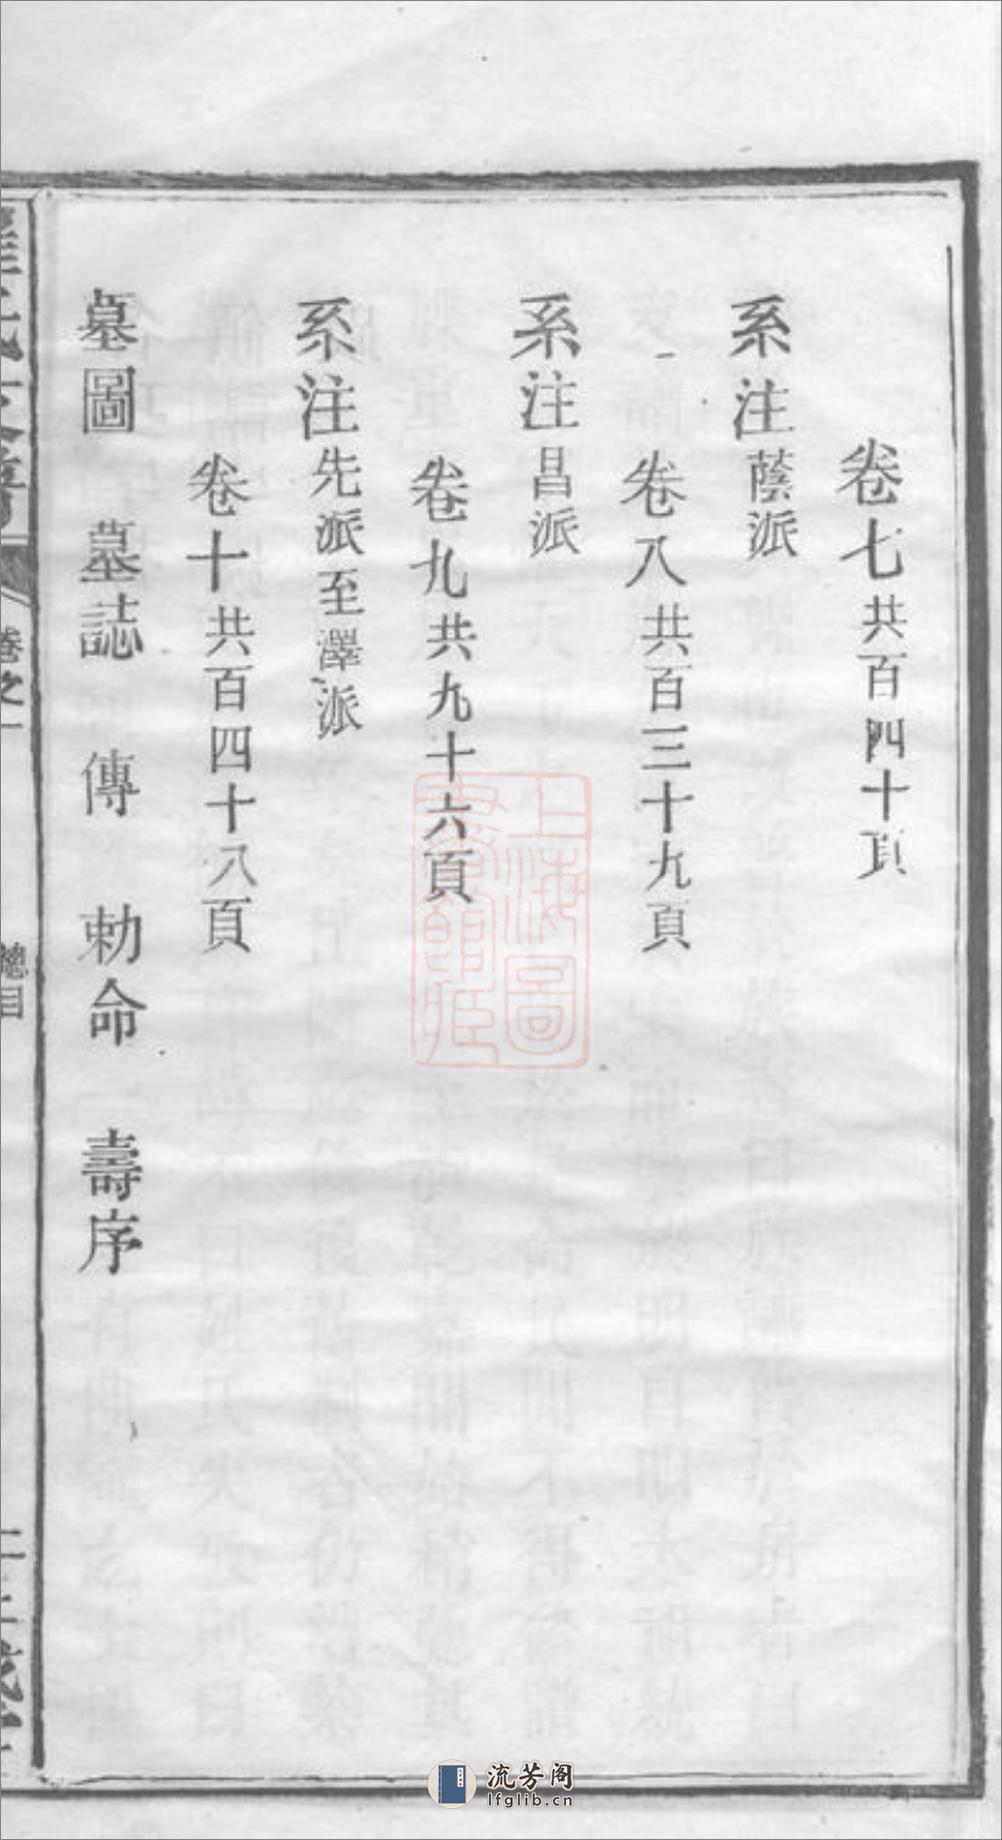 卷七共百四十頁
系注蔭派
卷八共百三十九頁
系注昌派
卷九共九十六頁
系注先派至澤派
卷十共百四十八頁
墓圖　墓誌　傳　勅命　壽序
卷之一
總目
上海圖書館藏
流芳阁
lfglib.cn